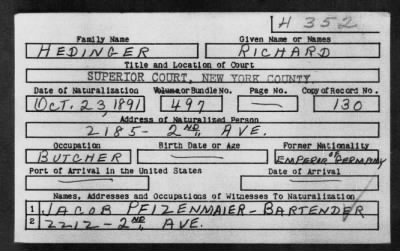 H 352
Family Name Given Name or Names
HEDINGER RICHARD
Title and Location of Court
SUPERIOR COURT, NEW YORK COUNTY.
Date of Naturalization Volume or Bundle No. Page No. Copy of Record No.
OCT. 23, 1891 497 — 130
Address of Naturalized Person
2185 - 2ND. AVE.
Occupation Birth Date or Age Former Nationality
BUTCHER — EMPEROR of GERMANY
Port of Arrival in the United States Date of Arrival
— —
Names, Addresses and Occupations of Witnesses To Naturalization
1 JACOB PFIZENMAIER - BARTENDER
2 2212 - 2ND. AVE.